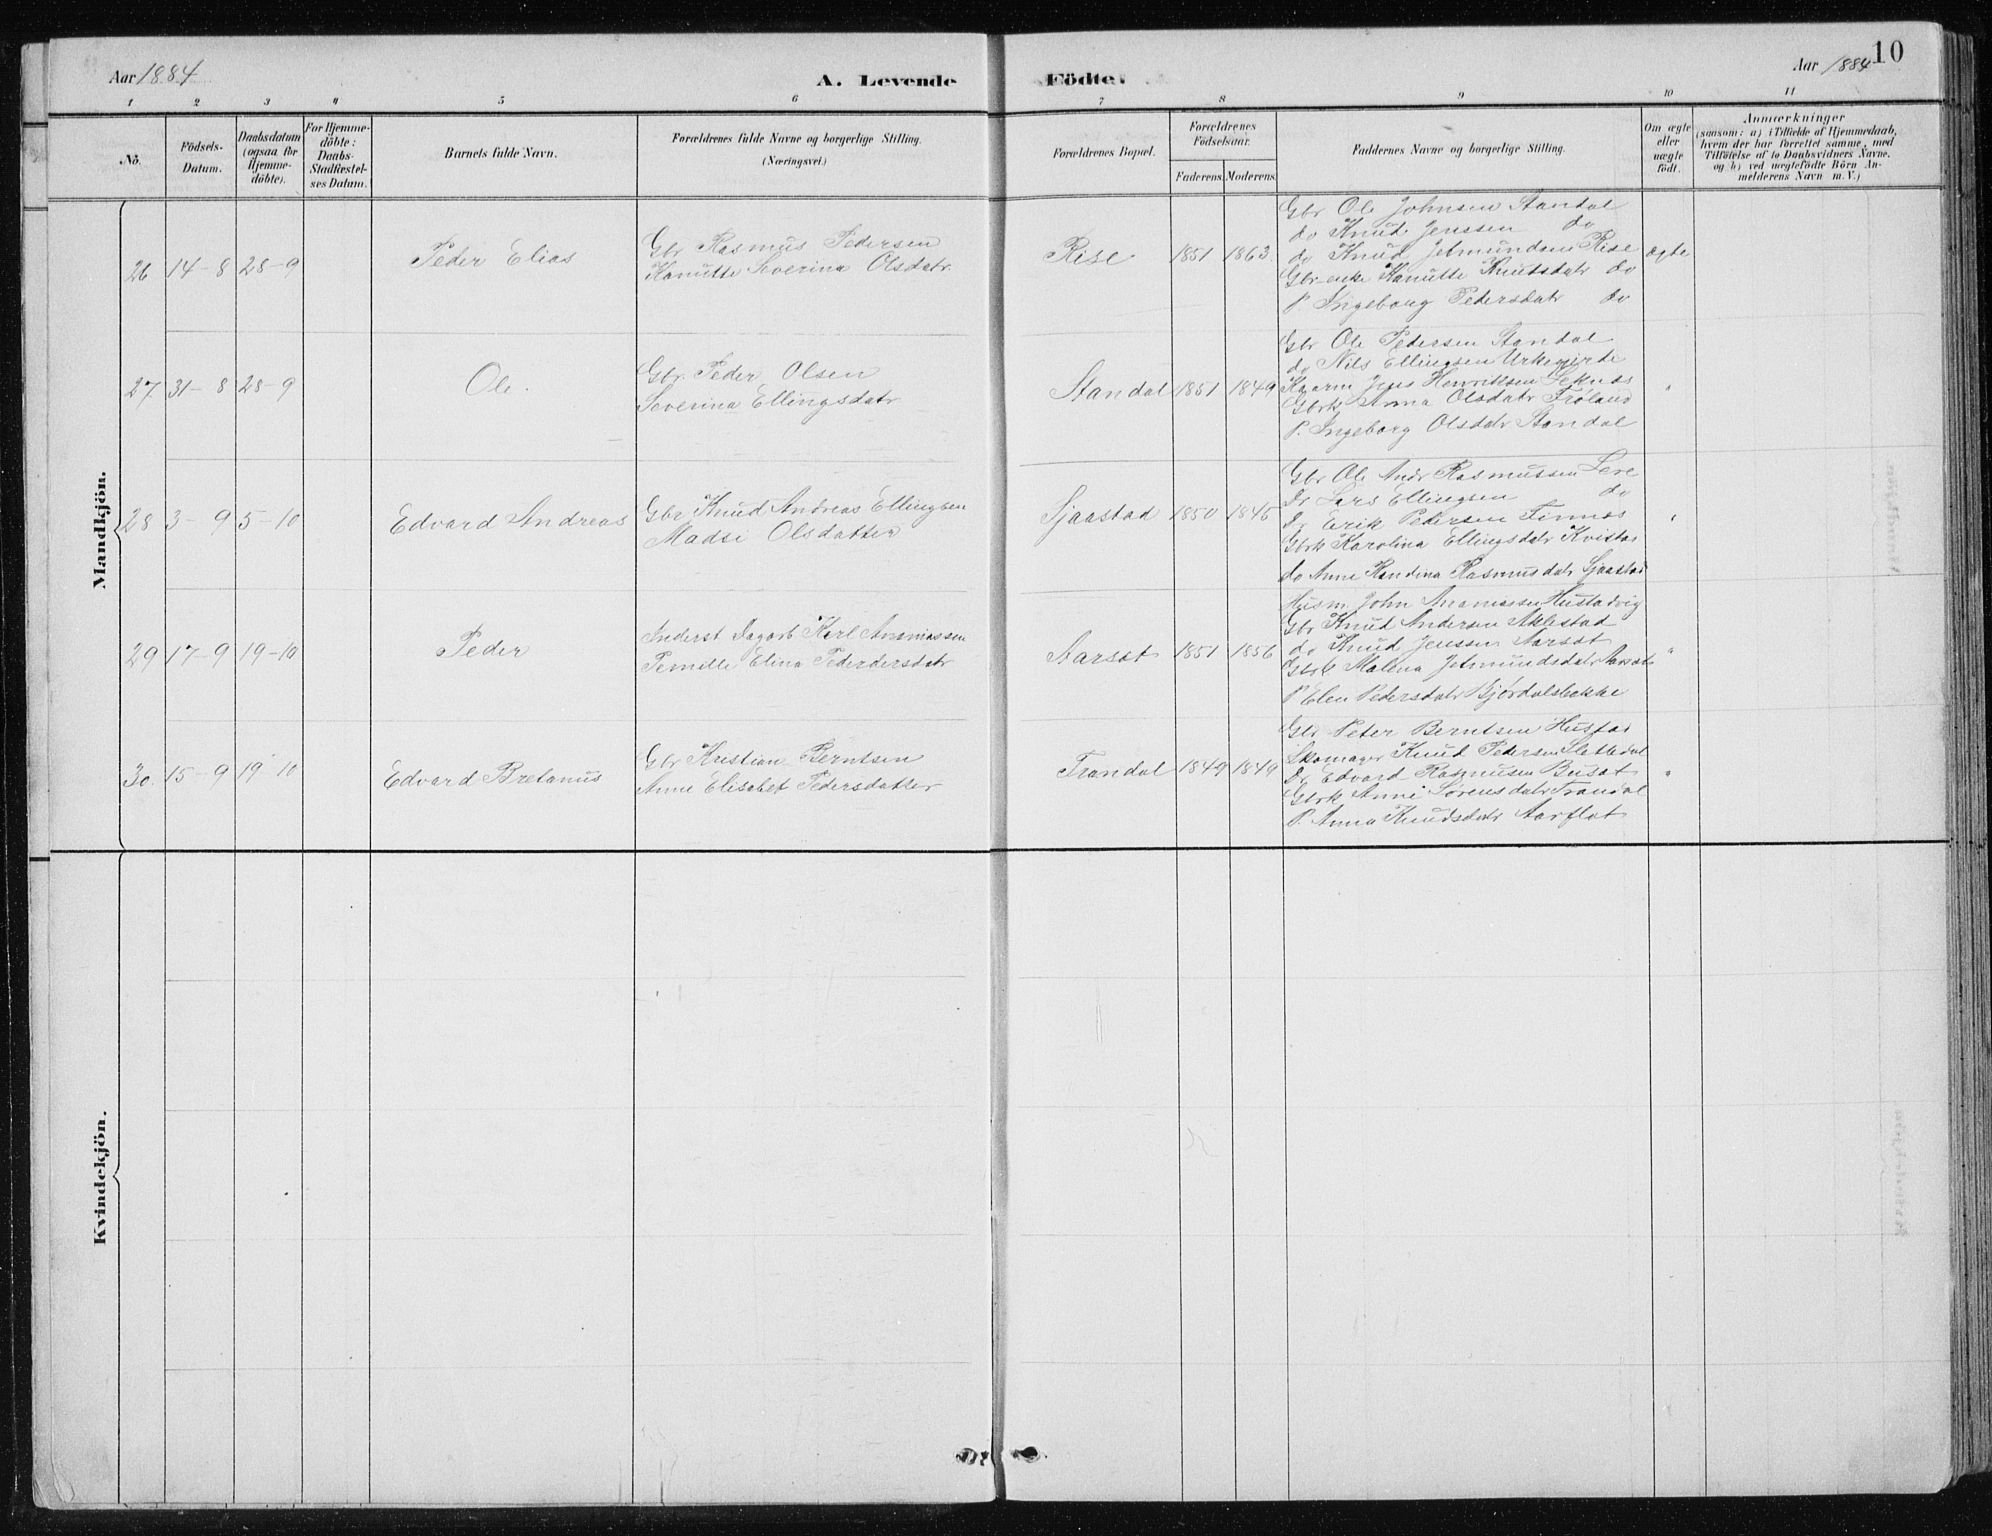 Aar 1884
A. Levende Födte.
Aar 1884
10
1 2 3 4 5 6 7 8 9 10 11
No.
Födsels-Datum.
Daabsdatum (ogsaa for Hjemme-döbte).
For Hjemme-döbte: Daabs-Stadfæstel-ses Datum.
Barnets fulde Navn.
Forældrenes fulde Navne og borgerlige Stilling.
(Næringsvei.)
Forældrenes Bopæl.
Forældrenes Födselsaar.
Faderens. Moderens.
Faddernes Navne og borgerlige Stilling.
Om ægte eller uægte födt.
Anmærkninger
(saasom: a) i Tilfælde af Hjemmedaab, hvem der har forrettet samme, med Tilföielse af to Daabsvidners Navne, og b) ved uægtefödte Börn An-melderens Navn m. V.)
Mandkjön.
26 14-8 28-9 Peder Elias
Gbr Rasmus Pedersen
Kanutte Severina Olsdatr
Rise 1851 1863
Gbr Ole Johnsen Standal
do Knud Jenssen do
do Knud Jetmundsen Rise
Gbr-enke Kanutte Knutsdatr do
P. Ingeborg Pedersdatr do
ægte
27 31-8 28-9 Ole.
Gbr. Peder Olsen
Severina Ellingsdatr
Standal 1851 1849
Gbr Ole Pedersen Standal
do Nils Ellingsen Urkegjerde
Jens Henriksen Leknes
Gbrk Anna Olsdatr Frøland
P. Ingeborg Olsdatr Standal
"
28 3-9 5-10 Edvard Andreas
Gbr Knud Andreas Ellingsen
Madsi Olsdatter
Sjaastad 1850 1845
Gbr Ole Andr Rasmussen
Do Lars Ellingsen do
Do Erik Pedersen Finnes
Gbrk Karolina Ellingsdatr Kvistad
do Anne Kandina Rasmusdatr Sjaastad
"
29 17-9 19-10 Peder
Inderst Dagarb Karl Ananiassen
Pernille Elina Pederdersdatr
Aarsæt 1851 1856
Husm John Ananiassen Hustadvig
Gbr Knud Andersen Aklestad
do Knud Jenssen Aarsæt
Gbrk Malena Jetmundsdatr Aarsæt
P. Elen Pedersdatr Bjørdalsbakke
"
30. 15-9 19-10 Edvard Bretanus
Gbr Kristian Berntsen
Anne Elisabet Pedersdatter
Trandal 1849 1849
Gbr Peter Berntsen Hustad
Skomager Knud Pedersen Slettedal
Do Edvard Rasmusen Busæt
Gbrk Anne Sørensdatr Trandal
P. Anna Knudsdatr Aarflot
"
Kvindekjön.